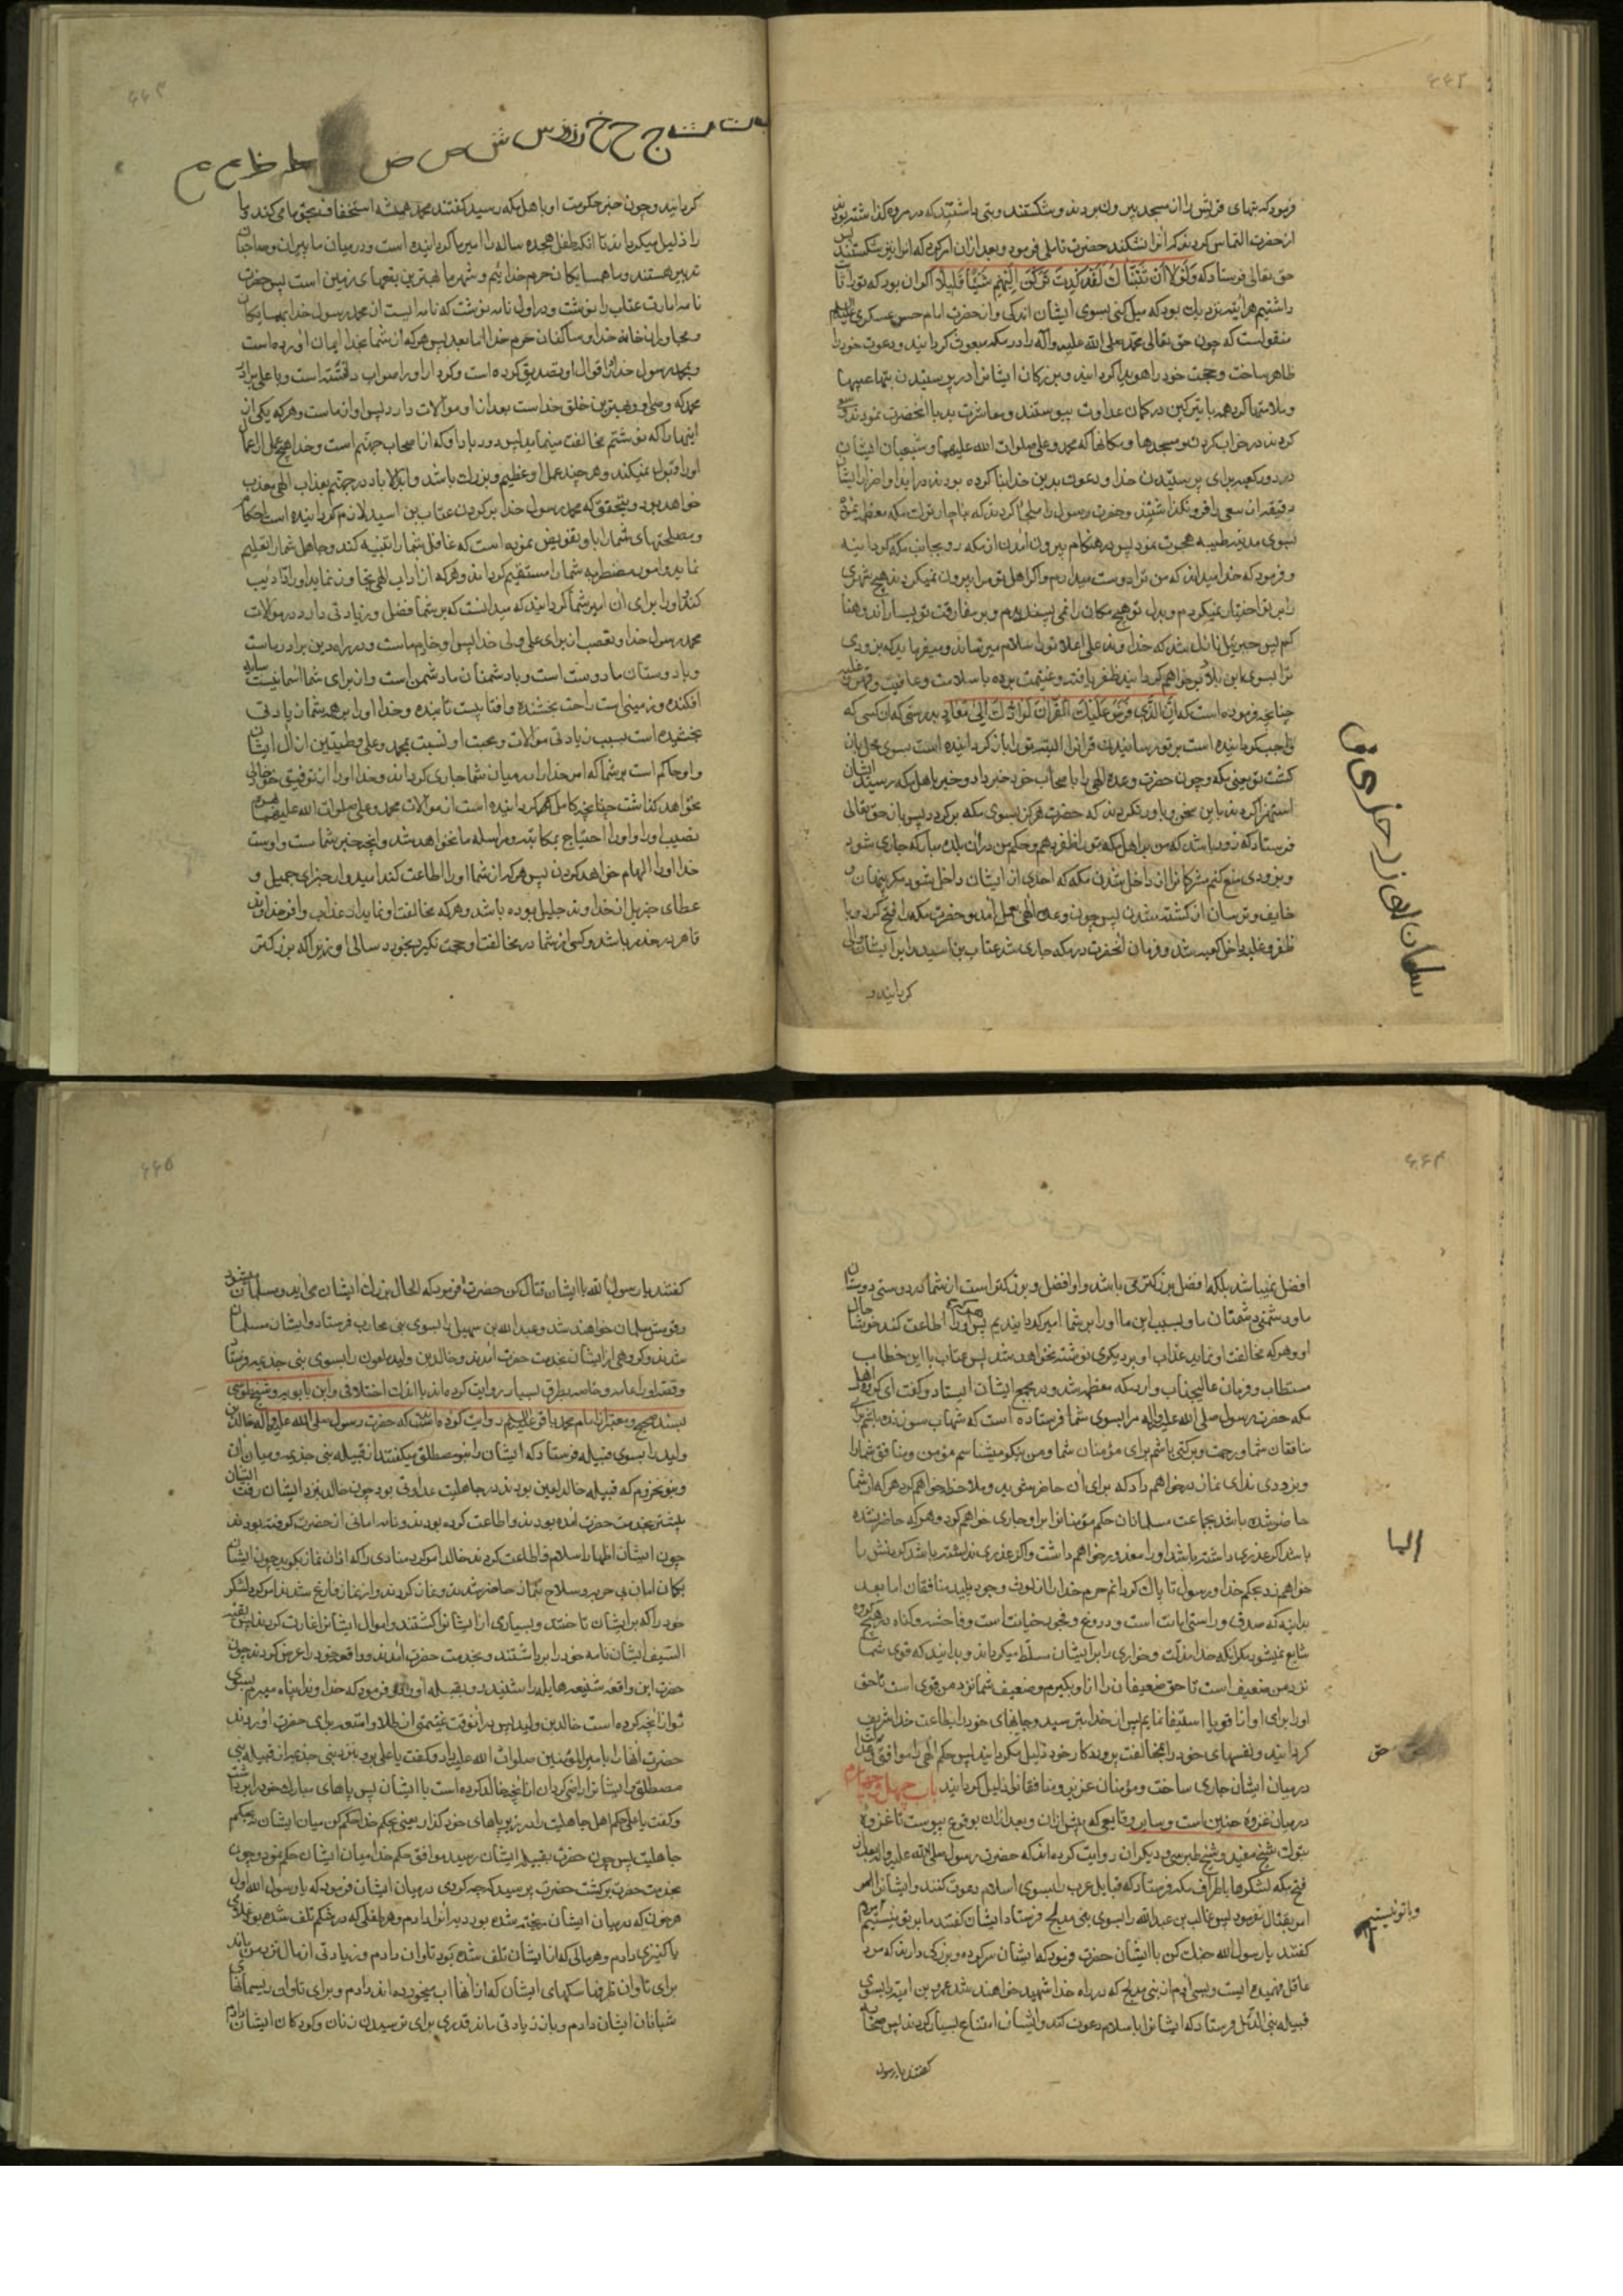 فرمود که بتهای قریش را از مسجد بیرون بردند و شکستند و بتی داشتند که در مروه گذاشته بودند
از حضرت التماس کردند که آنرا نشکند حضرت تاملی فرمود و بعد از آن امر کرد که آنرا نیز شکستند پس
حق تعالی فرستاد که وَلَوْلا أَنْ ثَبَّتْناكَ لَقَدْ كِدْتَ تَرْكَنُ إِلَيْهِمْ شَيْئًا قَلِيلاً اگر آن بود که ترا ثابت
داشتیم هر آینه نزدیک بود که میل کنی بسوی ایشان اندکی و از حضرت امام حسن عسکری علیه السلم
منقولست که چون حق تعالی محمد صلی الله علیه وآله را در مکه مبعوث گردانید و دعوت خود را
ظاهر ساخت و حجت خود را هویدا گردانید و بزرگان ایشانرا در پرستیدن بتها عیبها
و ملامتها کرد همه با تیر کین در کمان عداوت پیوستند و معاشرت بد با آنحضرت نمودند و سعی
کردند در خراب کردن مسجدها و مکانها که محمد و علی صلوات الله علیهما و شیعیان ایشان
در دور کعبه برای پرستیدن خدا و دعوت بدین خدا بنا کرده بودند و در ایذا و اضرار ایشان
دقیقه از سعی را فرو نگذاشتند و حضرت رسول را ملجا کردند که ناچار ترک مکه معظمه نموده
بسوی مدینه طیبه هجرت نمود پس در هنگام بیرون آمدن از مکه رو بجانب مکه گردانیده
و فرمود که خدا میداند که من ترا دوست میدارم و اگر اهل تو مرا بیرون نمیکردند هیچ شهری
را بر تو اختیار نمیکردم و بدل تو هیچ مکان را نمی پسندیدم و بر مفارقت تو بسیار اندوهناکم
پس جبرئیل نازل شد که خداوند علی اعلا تورا سلام میرساند و میفرماید که بزودی
ترا بسوی این بلد بر خواهم گردانید ظفر یافته و غنیمت برده با سلامت و عافیت و قهر و غلبه
چنانچه فرموده است که إِنَّ الَّذِي فَرَضَ عَلَيْكَ الْقُرْآنَ لَرَادُّكَ إِلَى مَعَادٍ بدرستی که آن کسی که
واجب گردانیده است بر تو رسانیدن قرآنرا البته تورا باز گرداننده است بسوی محل باز
گشت تو یعنی مکه و چون حضرت وعده الهی را با صحاب خود خبر داد و خبر باهل مکه رسید ایشان
استهزا کردند باین سخن و باور نکردند که حضرت هرگز بسوی مکه برگردد پس باز حق تعالی
فرستاد که زود باشد که من بر اهل مکه ترا ظفر دهم و حکم من در آن بلده مبارکه جاری شود
و بزودی منع کنم مشرکانرا از داخل شدن مکه که احدی از ایشان داخل نشود مگر پنهان و
خایف و ترسان از کشته شدن پس چون وعده الهی بعمل آمد و حضرت مکه را فتح کرد و با
ظفر و غلبه داخل کعبه شد و فرمان آنحضرت در مکه جاری شد عتاب بن اسید را بر ایشان والی
گردانید و
ج ح خ ر ز س ش ص ض
گردانید و چون خبر حکومت او باهل مکه رسید گفتند محمد همیشه استخفاف بحق ما می کند و ما
را ذلیل میگرداند تا آنکه طفل هجده ساله را امیر ما گردانیده است و در میان ما پیران و صاحبان
تدبیر هستند و ما همسایگان حرم خدائیم و شهر ما بهترین بقعهای زمین است پس حضرت
نامه امارت عتاب را نوشت و در اول نامه نوشت که نامه ایست از محمد رسول خدا بهمسایگان
و مجاوران خانه خدا و ساکنان حرم خدا اما بعد پس هر که از شما بخدا ایمان آورده است
و بمحمد رسول خدا در اقوال او تصدیق کرده است و کردار او را صواب دانسته است و با علی برادر
محمد که وصی او و بهترین خلق خداست بعد از او موالات دارد پس او از ماست و هر که یکی از
اینها را که نوشتم مخالفت مینماید پس دور باد او که از اصحاب جهنم است و خدا هیچ عمل از اعمال
اورا قبول نمیکند و هر چند عمل او عظیم و بزرگ باشد و ابد الاباد در جهنم بعذاب الهی معذب
خواهد بود و بتحقیق که محمد رسول خدا بر گردن عتاب بن اسید لازم گردانیده است احکام
و مصلحتهای شما را و باو تفویض نموده است که غافل شما را تنبیه کند و جاهل شما را تعلیم
نماید و امور مضطربه شما را مستقیم گرداند و هر که از آداب الهی تجاوز نماید او را تادیب
کند و او را برای آن امیر شما گردانید که میدانست که بر شما فضل و زیادتی دارد در موالات
محمد رسول خدا و تعصب از برای علی ولی خدا پس او خادم ماست و در راه دین برادر ماست
و با دوستان ما دوست است و با دشمنان ما دشمن است و از برای شما آسمانیست سایه
افکنده و زمینی است راحت بخشنده و آفتابیست تابنده و خدا او را بر همه شما زیادتی
بخشیده است بسبب زیادتی موالات و محبت او نسبت بمحمد و علی و طیبین از آل ایشان
و او حاکم است بر شما که امر خدا را در میان شما جاری گرداند و خدا او را از توفیق خود خالی
نخواهد گذاشت چنانچه کامل گردانیده است از موالات محمد و علی صلوات الله علیهما
نصیب او را و او را احتیاج بمکاتبه و مراسله ما نخواهد شد و آنچه خیر شماست و اوست
خدا او را الهام خواهد کردن پس هر که از شما او را اطاعت کند امیدوار جزای جمیل و
عطای جزیل از خداوند جلیل بوده باشد و هر که مخالفت او نماید از عذاب وافر خداوند
قاهر در حذر باشد و کسی از شما در مخالفت او حجت نگیرد بخورد سالی او زیرا که بزرگتر
افضل نمیباشد بلکه افضل بزرگتر می باشد و او افضل و بزرگتر است از شما در دوستی دوستان
ما و دشمنی دشمنان ما و بسبب این ما او را بر شما امیر گردانیدیم پس هر که او را اطاعت کند خوشا حال
او و هر که مخالفت او نماید عذاب او بر دیگری نوشته نخواهد شد پس عتاب با این خطاب
مستطاب و فرمان عالیجناب وارد مکه معظمه شد و در مجمع ایشان ایستاد و گفت ای گروه اهل
مکه حضرت رسول صلی الله علیه وآله مرا بسوی شما فرستاده است که شهاب سوزنده باشم برای
منافقان شما و رحمت و برکتی باشم برای مؤمنان شما و من نیکو میشناسم مؤمن و منافق شما را
و بزودی ندای نماز در خواهم داد که برای آن حاضر شوید و ملاحظه خواهم کرد هر که از شما
حاضر شده باشد بجماعت مسلمانان حکم مؤمنانرا بر او جاری خواهم کرد و هر که حاضر نشده
باشد اگر عذری داشته باشد او را معذور خواهم داشت و اگر عذری نداشته باشد گردنش را
خواهم زد بحکم خدا و رسول تا پاک گردانم حرم خدا را از لوث وجود پلید منافقان اما بعد
بدانید که صدق و راستی امانت است و دروغ و فجور خیانت است و فاحشه و گناه در هیچ گروه
شایع نمیشود مگر آنکه خدا مذلت و خواری را بر ایشان مسلط میگرداند و بدانید که قوی شما
نزد من ضعیف است تا حق ضعیفان را از او بگیرم و ضعیف شما نزد من قوی است تا حق
او را برای او از اقویا استیفا نمایم پس از خدا بترسید و جانهای خود را بطاعت خدا شریف
گردانید و نفسهای خود را بمخالفت پروردگار خود ذلیل مگردانید پس حکم الهی را موافق گفته خدا
در میان ایشان جاری ساخت و مؤمنان عزیز و منافقان ذلیل گردانید باب چهل و چهارم
در میان غزوه حنین است و سایر وقایعی که پیش از آن و بعد از آن بوقوع پیوست تا غزوه
تبوک شیخ مفید و شیخ طبرسی و دیگران روایت کرده اند که حضرت رسول صلی الله علیه واله بعد از
فتح مکه لشکرها باطراف مکه فرستاد که قبایل عرب را بسوی اسلام دعوت کنند و ایشانرا
امر بقتال نفرمود پس غالب بن عبدالله را بسوی بنی مدلج فرستاد ایشان گفتند ما بر تو نیستیم
گفتند یا رسول الله جنگ کن با ایشان حضرت فرمود که ایشان سرکرده و بزرگی دارند که مرد
عاقل فهمیده ایست و بسی مردم از بنی مدلج که در راه خدا شهید خواهند شد و عمرو بن امیه را بسوی
قبیله بنی الدئل فرستاد که ایشانرا باسلام دعوت کند و ایشان امتناع بسیار کردند پس صحابه
گفتند یا رسول
و با تو نیستیم
گفتند یا رسول الله با ایشان قتال کن حضرت فرمود که الحال بزرگ ایشان می آید و مسلمان میشود
و قومش مسلمان خواهند شد و عبدالله بن سهیل را بسوی بنی محارب فرستاد و ایشان مسلمان
شدند و گروهی از ایشان بخدمت حضرت آمدند و خالد بن ولید ملعون را بسوی بنی جذیمه فرستاد
و قصه او را عامه و خاصه بطرق بسیار روایت کرده اند با اندک اختلافی و ابن بابویه و شیخ طوسی
بسند صحیح و معتبر از امام محمد باقر علیه السلم روایت کرده اند که حضرت رسول صلی الله علیه واله خالد بن
ولید را بسوی قبیله فرستاد که ایشان را بنو مصطلق میگفتند از قبیله بنی جذیمه و میان آن
و بنو مخزوم که قبیله خالد لعین بودند در جاهلیت عداوتی بود چون خالد بنزد ایشان رفت ایشان
پیشتر بخدمت حضرت آمده بودند و اطاعت کرده بودند و نامه امانی از حضرت گرفته بودند
چون ایشان اظهار اسلام و اطاعت کردند خالد امر کرد منادی را که اذان نماز بگوید چون ایشان
بگمان امان بی حربه و سلاح بنماز حاضر شدند و نماز کردند و از نماز فارغ شدند امر کرد لشکر
خود را که بر ایشان تاختند و بسیاری از ایشانرا کشتند و اموال ایشانرا غارت کردند پس بقیة
السیف ایشان نامه خود را برداشتند و بخدمت حضرت آمدند و واقعه خود را عرض کردند چون
حضرت این واقعه شنیعه هایله را شنیدند رو بقبله آورد و فرمود که خداوندا پناه میبرم بسوی
تو از آنچه کرده است خالد بن ولید پس در آنوقت غنیمتی از طلا و امتعه برای حضرت آوردند
حضرت آنها را بامیرالمؤمنین صلوات الله علیه داد و گفت یا علی برو بنزد بنی جذیمه از قبیله بنی
مصطلق و ایشانرا راضی گردان از آنچه خالد کرده است با ایشان پس پاهای مبارک خود را برداشت
و گفت یا علی حکم اهل جاهلیت را در زیر پاهای خود گذار یعنی بحکم خدا حکم کن میان ایشان نه بحکم
جاهلیت پس چون حضرت بقبیله ایشان رسید موافق حکم خدا میان ایشان حکم نمود و چون
بخدمت حضرت برگشت حضرت پرسید که چه کردی در میان ایشان فرمود که یا رسول الله اول
هر خون که در میان ایشان ریخته شده بود دیه آنرا دادم و هر طفلی که در شکم تلف شده بود غلامی
یا کنیزی دادم و هر مالی که از ایشان تلف شده بود تاوان دادم و زیادتی از مال نزد من ماند
برای تاوان ظرفها سگهای ایشان که از آنها آب میخورده اند دادم و برای تاوان ریسمانهای
شبانان ایشان دادم و باز زیادتی ماند قدری برای ترسیدن زنان و کودکان ایشان دادم